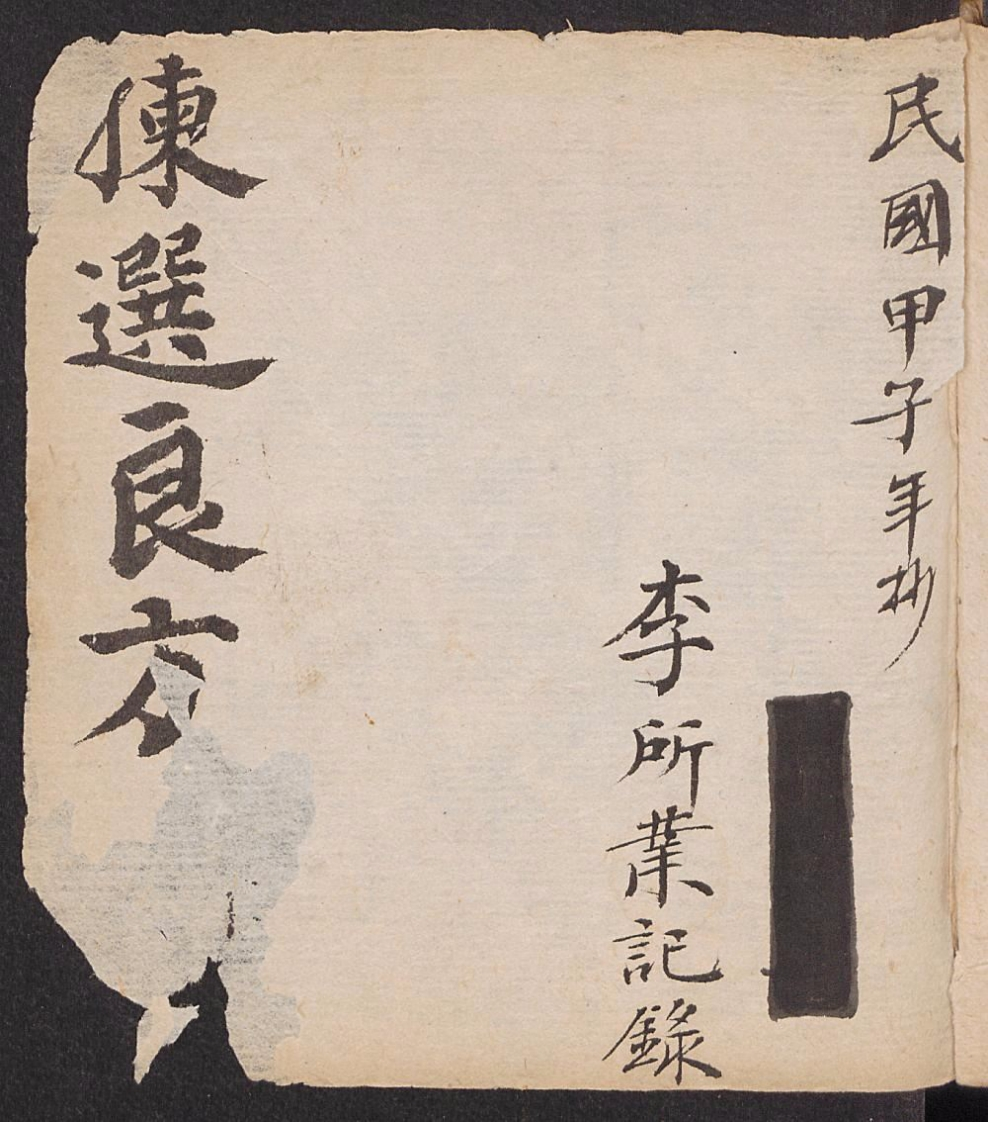 民國甲子年抄
李所業記錄
揀選良方